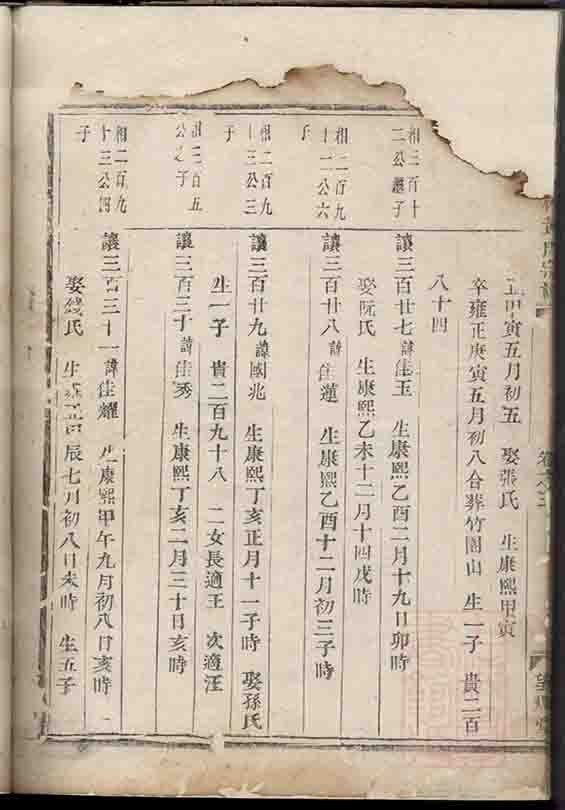 寅五月初五 娶張氏 生康熙甲寅
卒雍正庚寅五月初八合葬竹園山 生一子 貴二百
八十四
相三百十
二公繼子
讓三百廿七諱佳玉 生康熙乙酉二月十九日卯時
娶阮氏 生康熙乙未十二月十四戌時
相二百九
十二公六
子
讓三百廿八諱佳蓮 生康熙乙酉十二月初三子時
相二百九
十三公三
子
讓三百廿九諱國兆 生康熙丁亥正月十一子時 娶孫氏
生一子 貴二百九十八 二女長適王 次適汪
相三百五
公之子
讓三百三十諱佳秀 生康熙丁亥二月三十日亥時
相二百九
十三公四
子
讓三百三十一諱佳耀 生康熙甲午九月初八日亥時
娶錢氏 生雍正甲辰七月初八日未時 生五子